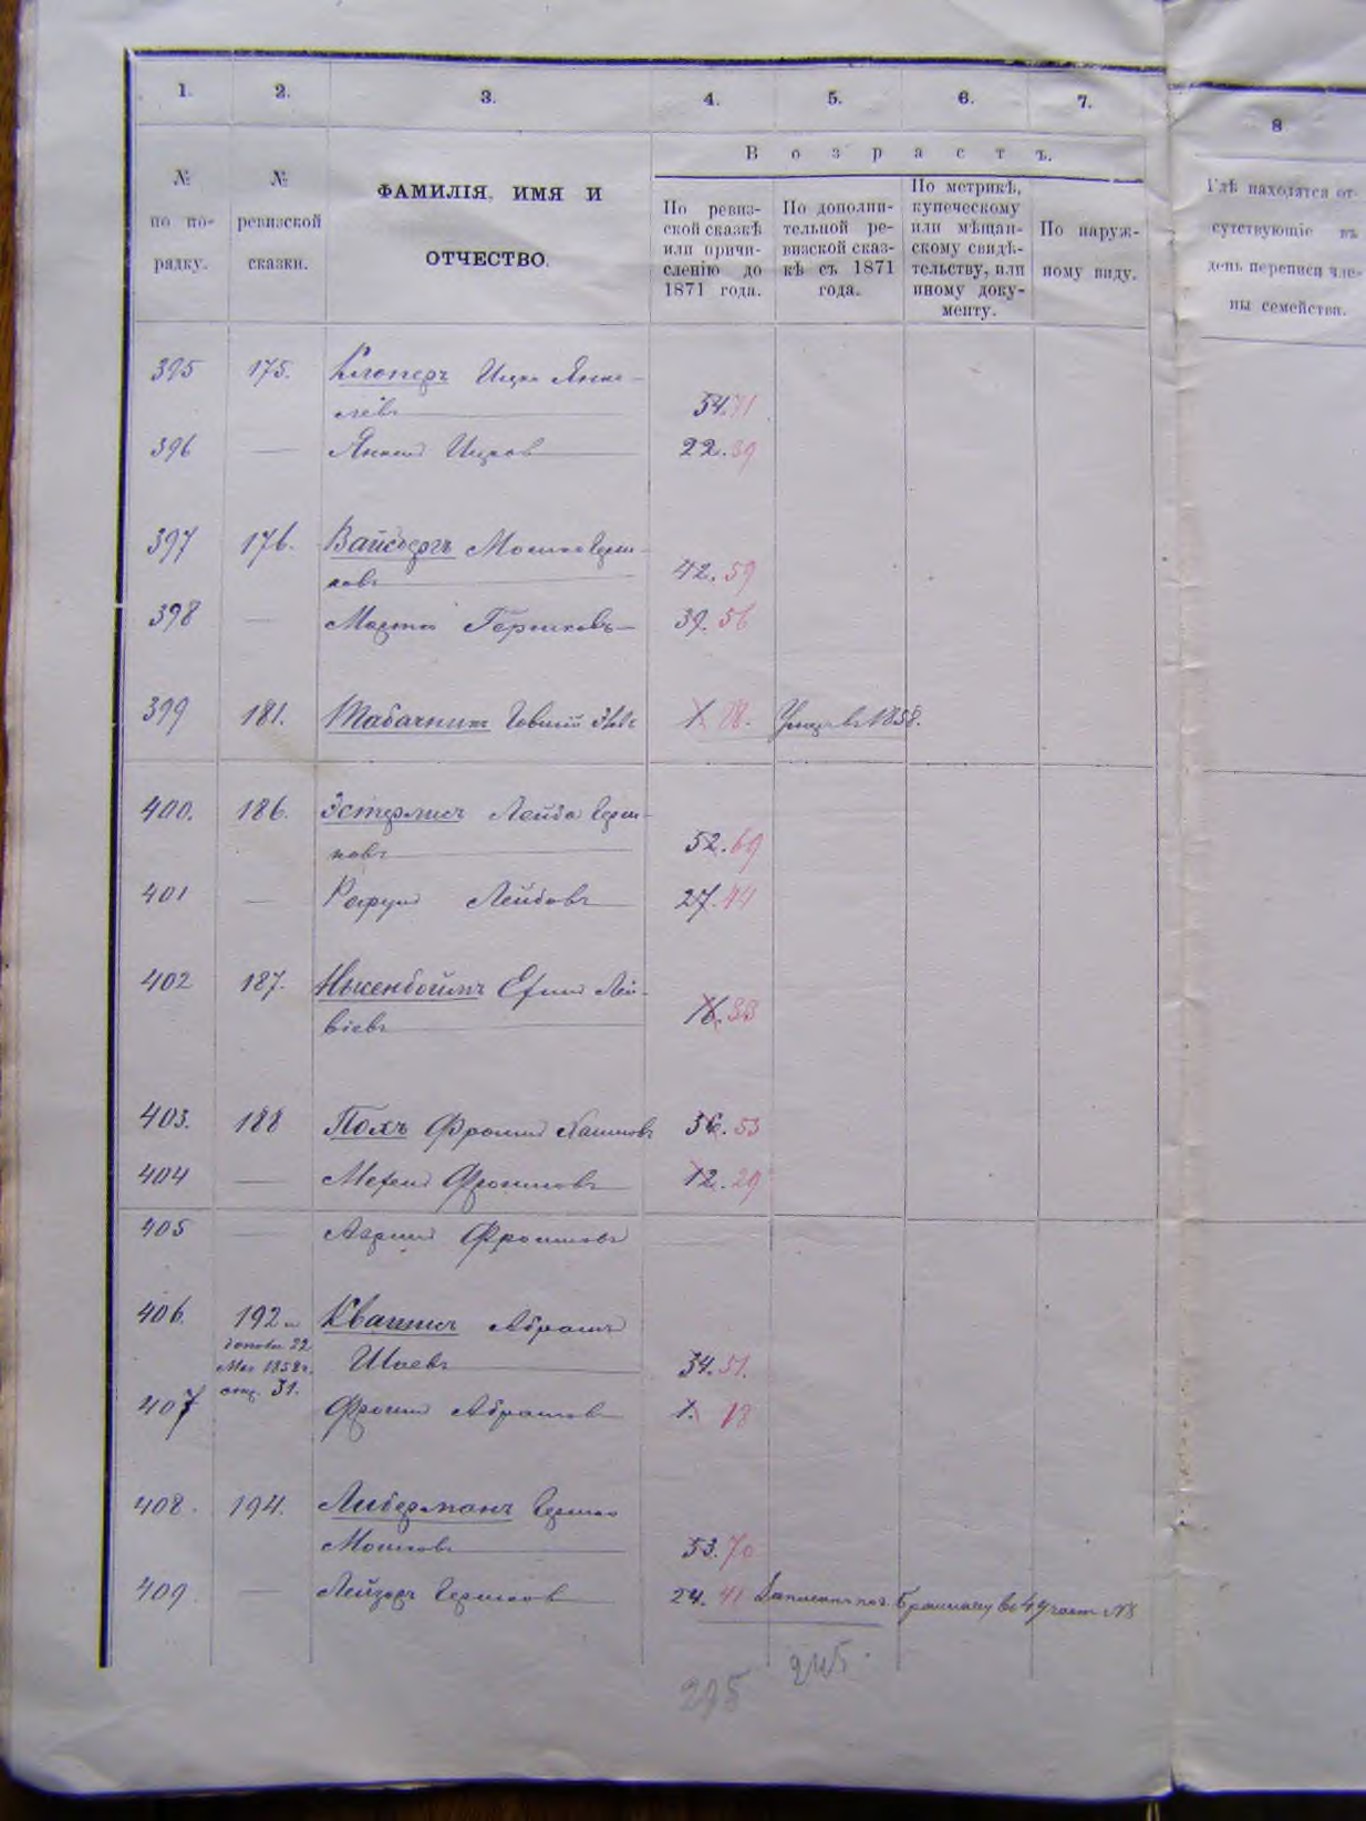 1. 2. 3. 4. 5. 6. 7. 8
В о з р а с т ъ.
№ по по-
рядку.
№
ревизской
сказки.
ФАМИЛІЯ, ИМЯ И
ОТЧЕСТВО.
По ревиз-
ской сказкѣ
или причи-
сленію до
1871 года.
По дополни-
тельной ре-
визской сказ-
кѣ съ 1871
года.
По метрикѣ,
купеческому
или мѣщан-
скому свидѣ-
тельству, или
иному доку-
менту.
По наруж-
ному виду.
Гдѣ находятся от-
сутствующіе въ
день переписи чле-
ны семейства.
395 175. Клоперъ Ицко Янке-
левъ 54. 71
396 — Янкель Ицков 22. 39
397 176. Вайсбергъ Мошко Герш-
ковъ 42. 59
398 — Мордко Гершковъ 39. 56
399 181. Табачникъ 1. 18. 1858.
400. 186. Эстерлисъ Лейба Герш-
ковъ 52. 69
401 — Рафул Лейбовъ 27. 44
402 187. Лей-
16. 33
403. 188 Полъ Фроим Хаимовъ 36. 53
404 — Фроимовъ 12. 29
405 — Фроимовъ
406. 192 и Абрамъ
22
1858 г.
стр. 31.
Шаевъ 34. 51.
407 Фроим Абрамов 1. 18
408. 194. Либерманъ Гершко
Мошковъ 53. 70
409. — Лейзеръ Гершков 24. 41 №8
295 245.